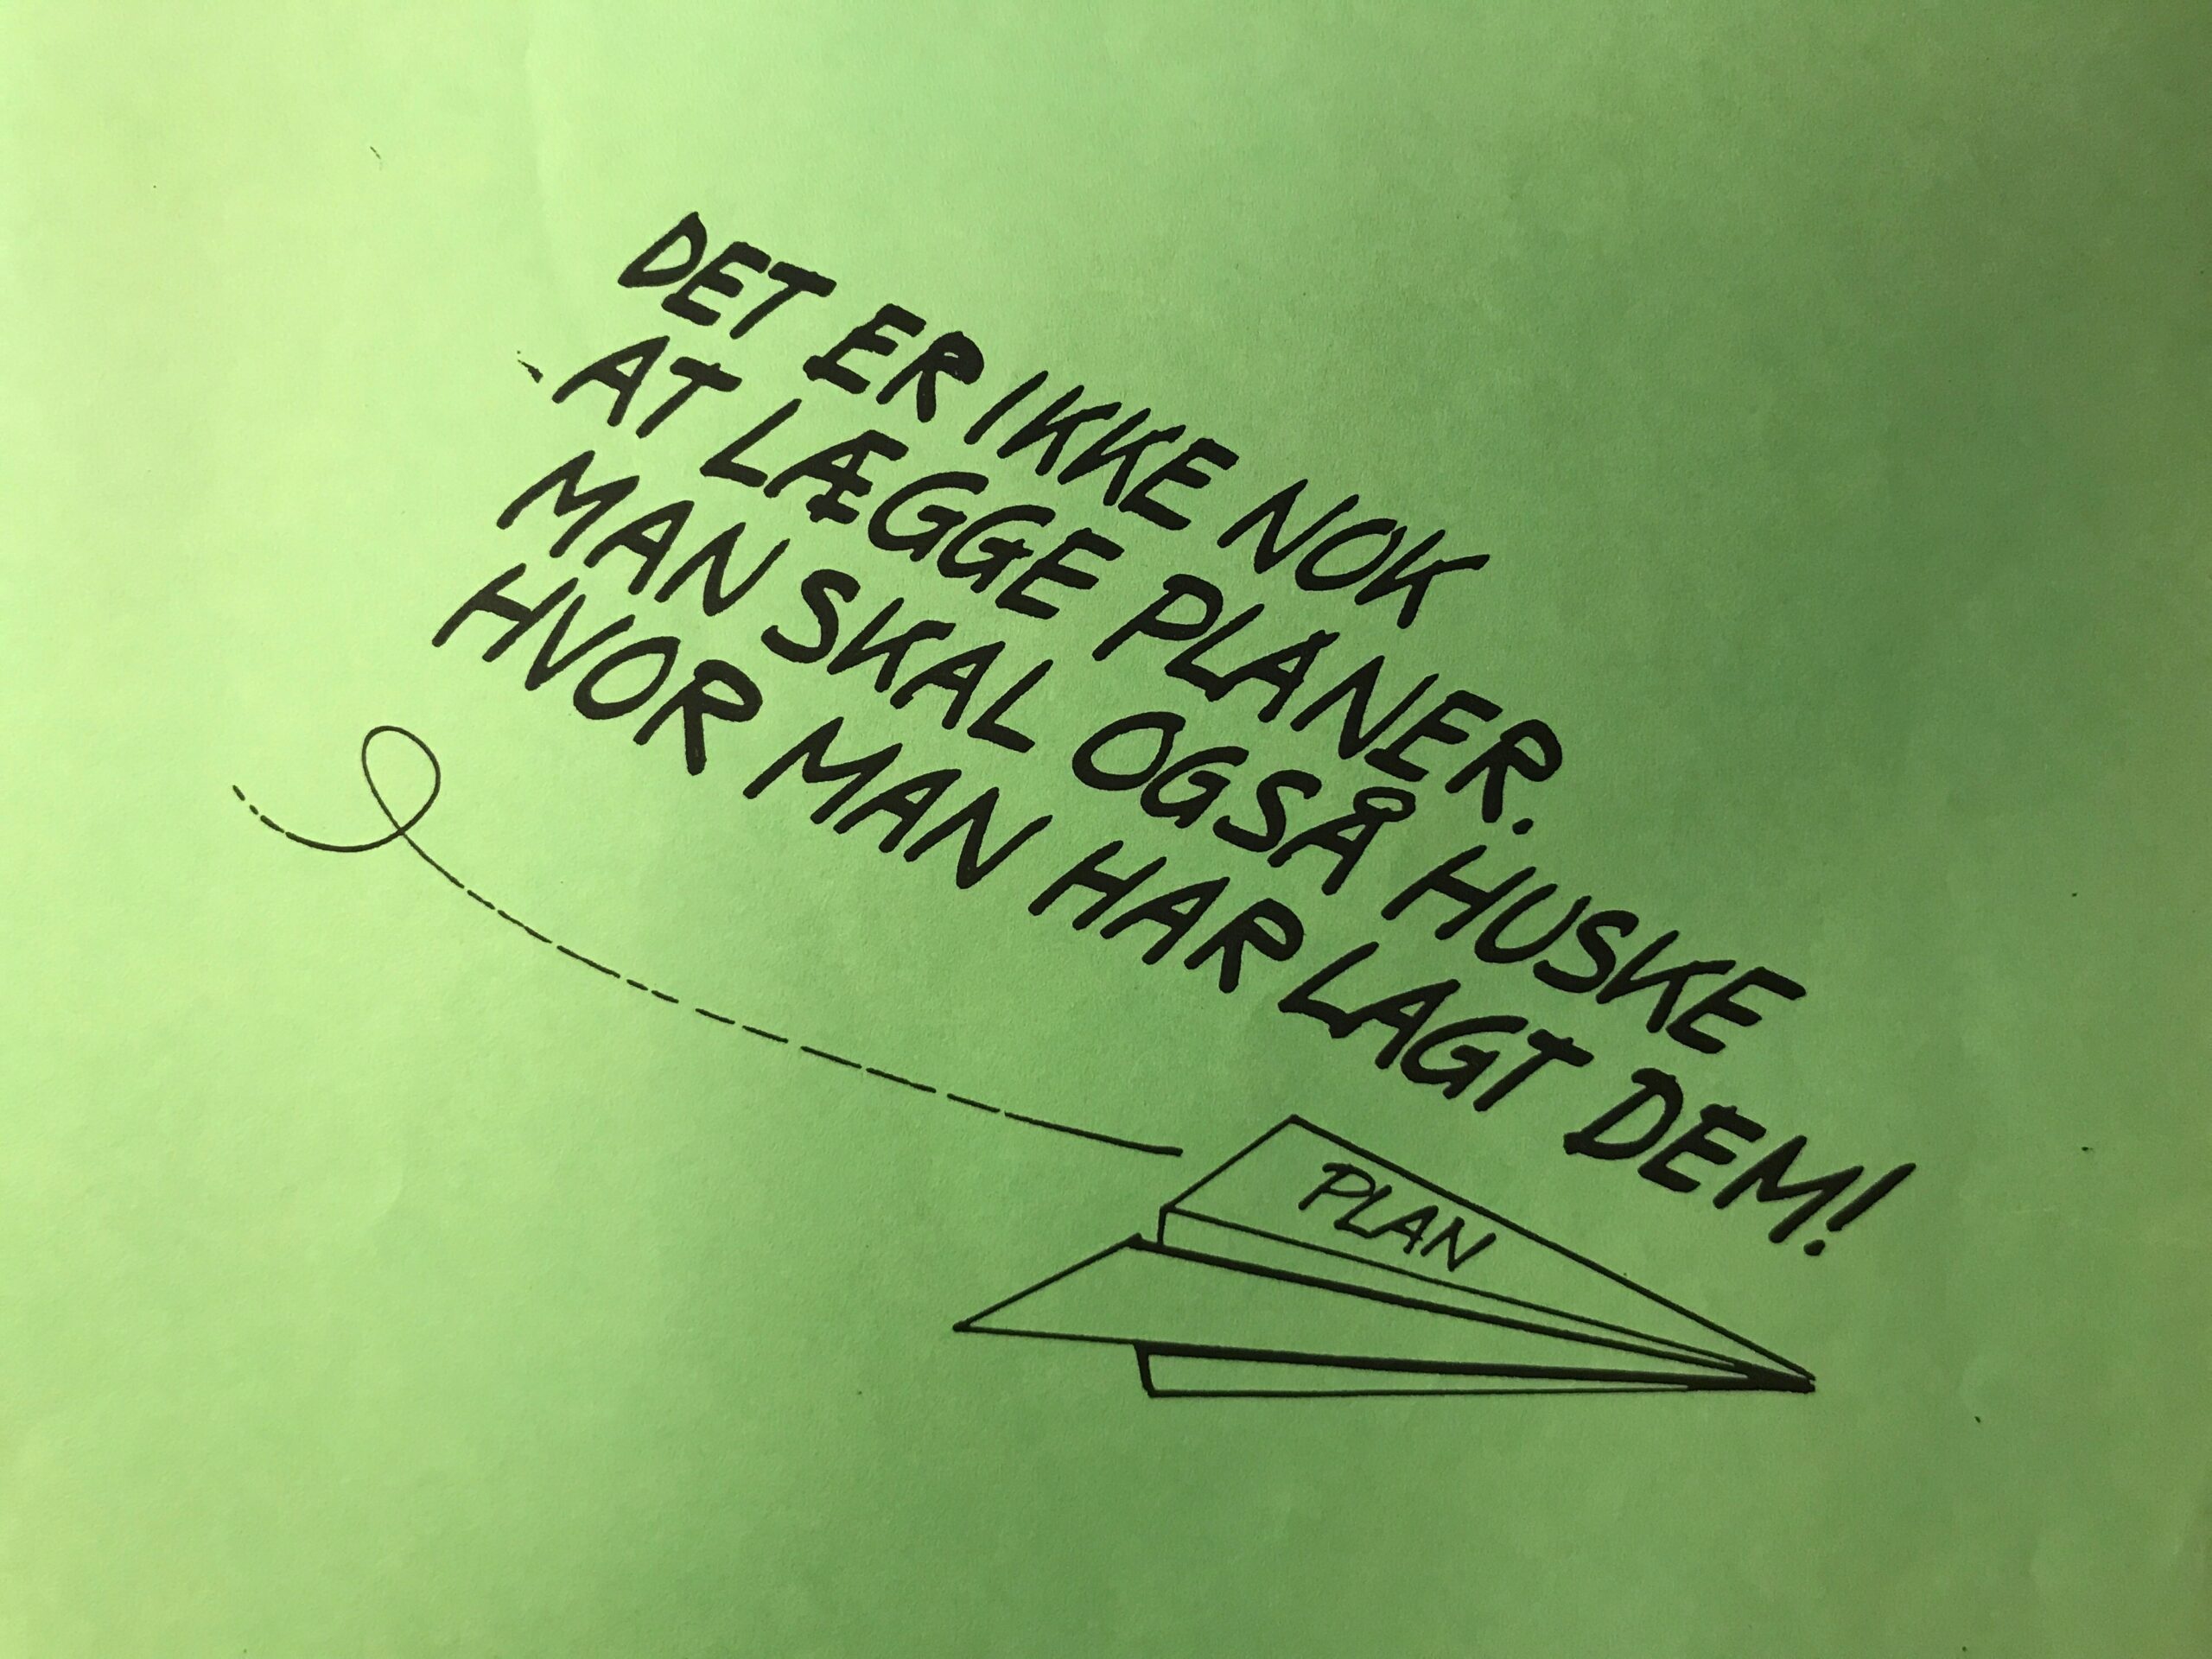 DET ER IKKE NOK
AT LÆGGE PLANER.
MAN SKAL OGSÅ HUSKE
HVOR MAN HAR LAGT DEM!
PLAN